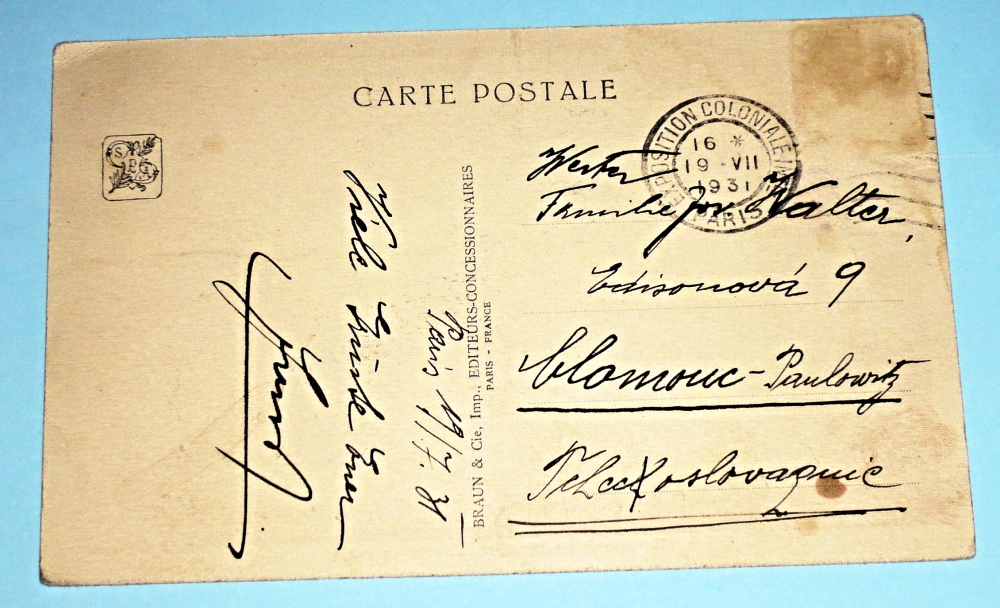 CARTE POSTALE
S P G
EXPOSITION COLONIALE INT
16 *
19 - VII
1931
PARIS
Werter
Familie Walter,
Edisonová 9
Olomouc - Paulowitz
Tchecoslovaquie
BRAUN & Cie, Imp., EDITEURS-CONCESSIONNAIRES
PARIS - FRANCE
Paris 19/7. 31
Viele Grüsse Euer